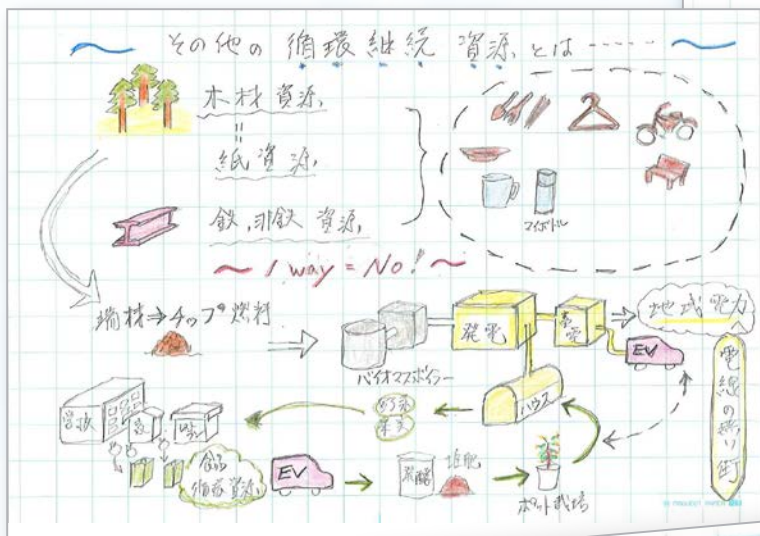 その他の循環継続資源とは……
木材資源
＝
紙資源
鉄,非鉄資源
マイボトル
〜 1 way = No! 〜
端材⇒チップ燃料
バイオマスボイラー
発電
蓄電
地域電力へ
EV
電線の無い町
ハウス
野菜
果実
学校
レストラン
食品
循環資源
EV
発酵
堆肥
ポット栽培